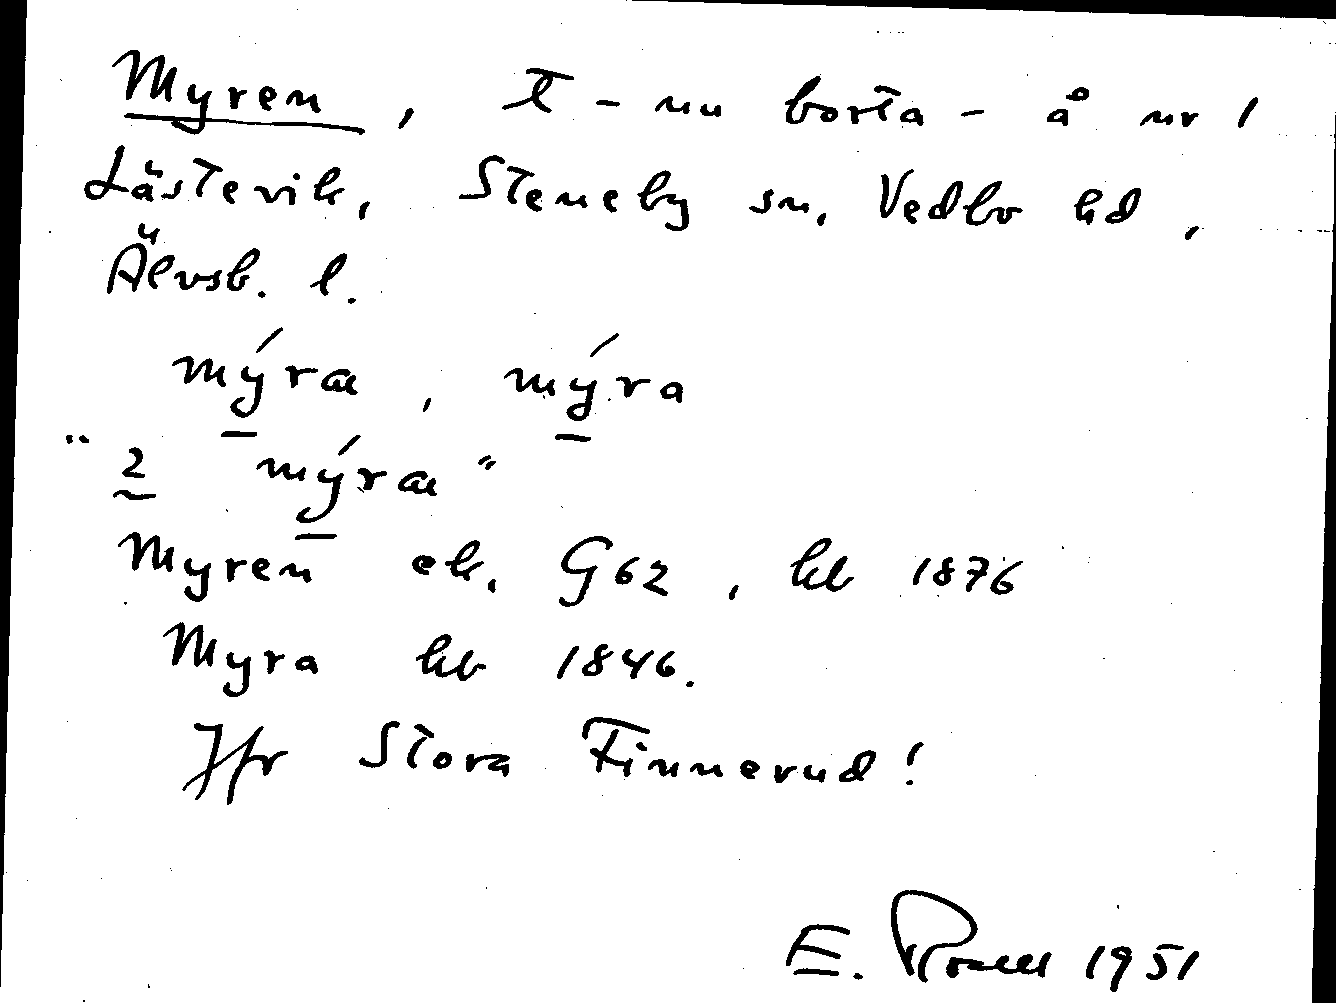 Myren, T - nu borta - å nr 1
Låstevik, Steneby sn, Vedbo hd,
Älvsb. l.
mýræ, mýra
"2 mýræ"
Myren ek. G62, kb 1876
Myra kb 1846.
Jfr Stora Finnerud!
E. 1951